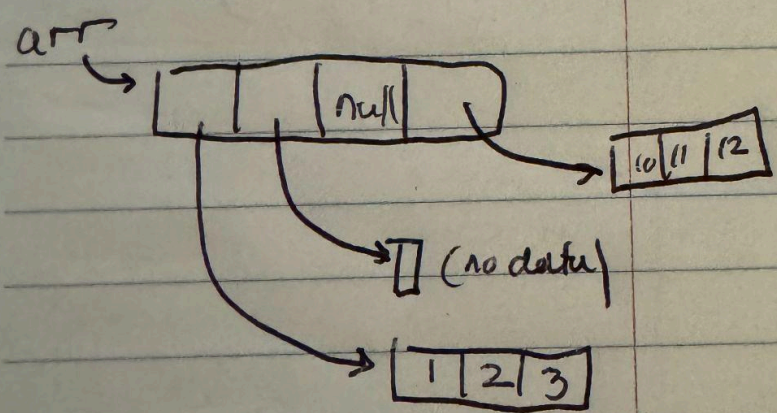 arr
null
10 11 12
(no data)
1 2 3